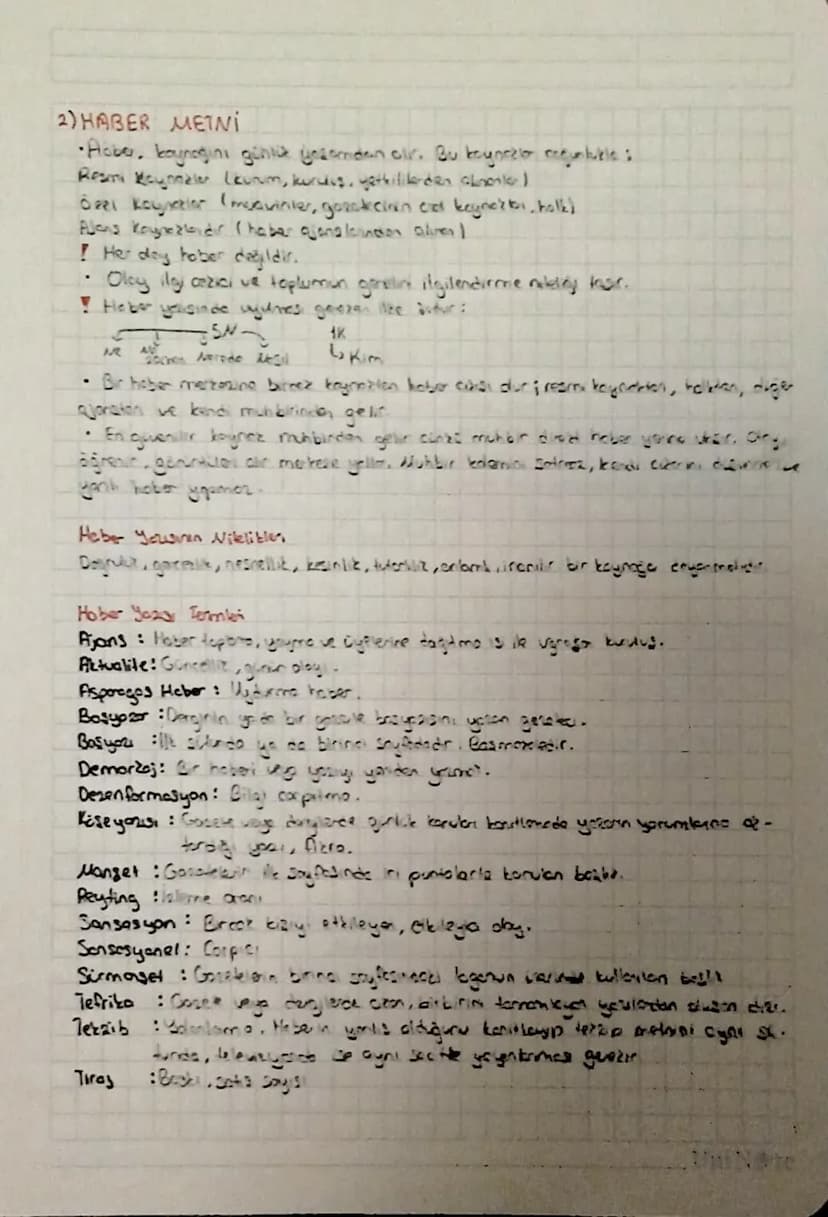 2) HABER METNİ
• Haber, kaynağını günlük yaşamdan alır. Bu kaynaklar :
Resmi Kaynaklar (kurum, kuruluş, yetkililerden alınanlar)
Özel Kaynaklar (muavinler, gazetecinin özel kaynakları, halk)
Ajans Kaynaklardır (haber ajanslarından alınan)
! Her olay haber değildir.
• Olay ilgi çekici ve toplumun genelini ilgilendirme niteliği taşır.
! Haber yazısında uyulması gereken ilke şudur :
5N 1K
Ne Ne zaman Nerede Nasıl Kim
• Bir haber merkezine birçok kaynaktan haber akışı olur ; resmi kaynaktan, halktan, diğer
ajanstan ve kendi muhbirinden gelir.
• En güvenilir kaynak muhbirden gelir çünkü muhbir direkt haber yerine Olayı
öğrenir, görüntüleri alır merkeze yollar. Muhbir kalemini satmaz, kendi çıkarını ve
yanlı haber yapamaz.
Haber Yazısının Nitelikleri
Doğruluk, güncellik, nesnellik, kesinlik, tutarlılık, anlamlı, inanılır bir kaynağa dayanmalıdır
Haber Yazısı Terimleri
Ajans : Haber toplama, yayma ve üyelerine dağıtma işi ile uğraşan kuruluş.
Aktualite : Güncellik, günün olayı.
Asparagas Haber : Uydurma haber.
Başyazar : Derginin ya da bir gazete başyazısını yazan gazeteci.
Başyazı : İlk sütunda ya da birinci sayfadadır. Başmakaledir.
Demarkaj : Bir haberi veya yazıyı yeniden yazmak.
Dezenformasyon : Bilgi çarpıtma.
Köşe yazısı : Gazete veya dergilerde günlük konuları yazarın yorumlarına ak-
tardığı yazı, fıkra.
Manşet : Gazetelerin ilk sayfasında iri puntolarla konulan başlık.
Reyting : İzlenme oranı
Sansasyon : Birçok kişiyi etkileyen, etkileyici olay.
Sansasyonel : Çarpıcı
Sürmanşet : Gazetelerin birinci sayfasındaki logonun üzerinde kullanılan başlık
Tefrika : Gazete veya dergilerde çıkan, birbirini tamamlayan yazılardan oluşan dizi.
Tekzib : Yalanlama. Haberin yanlış olduğunu kanıtlayıp tekzip metnini aynı sü-
tunda, televizyonda ise aynı saatte yayınlanması gerekir
Tiraj : Baskı, satış sayısı
UniNote